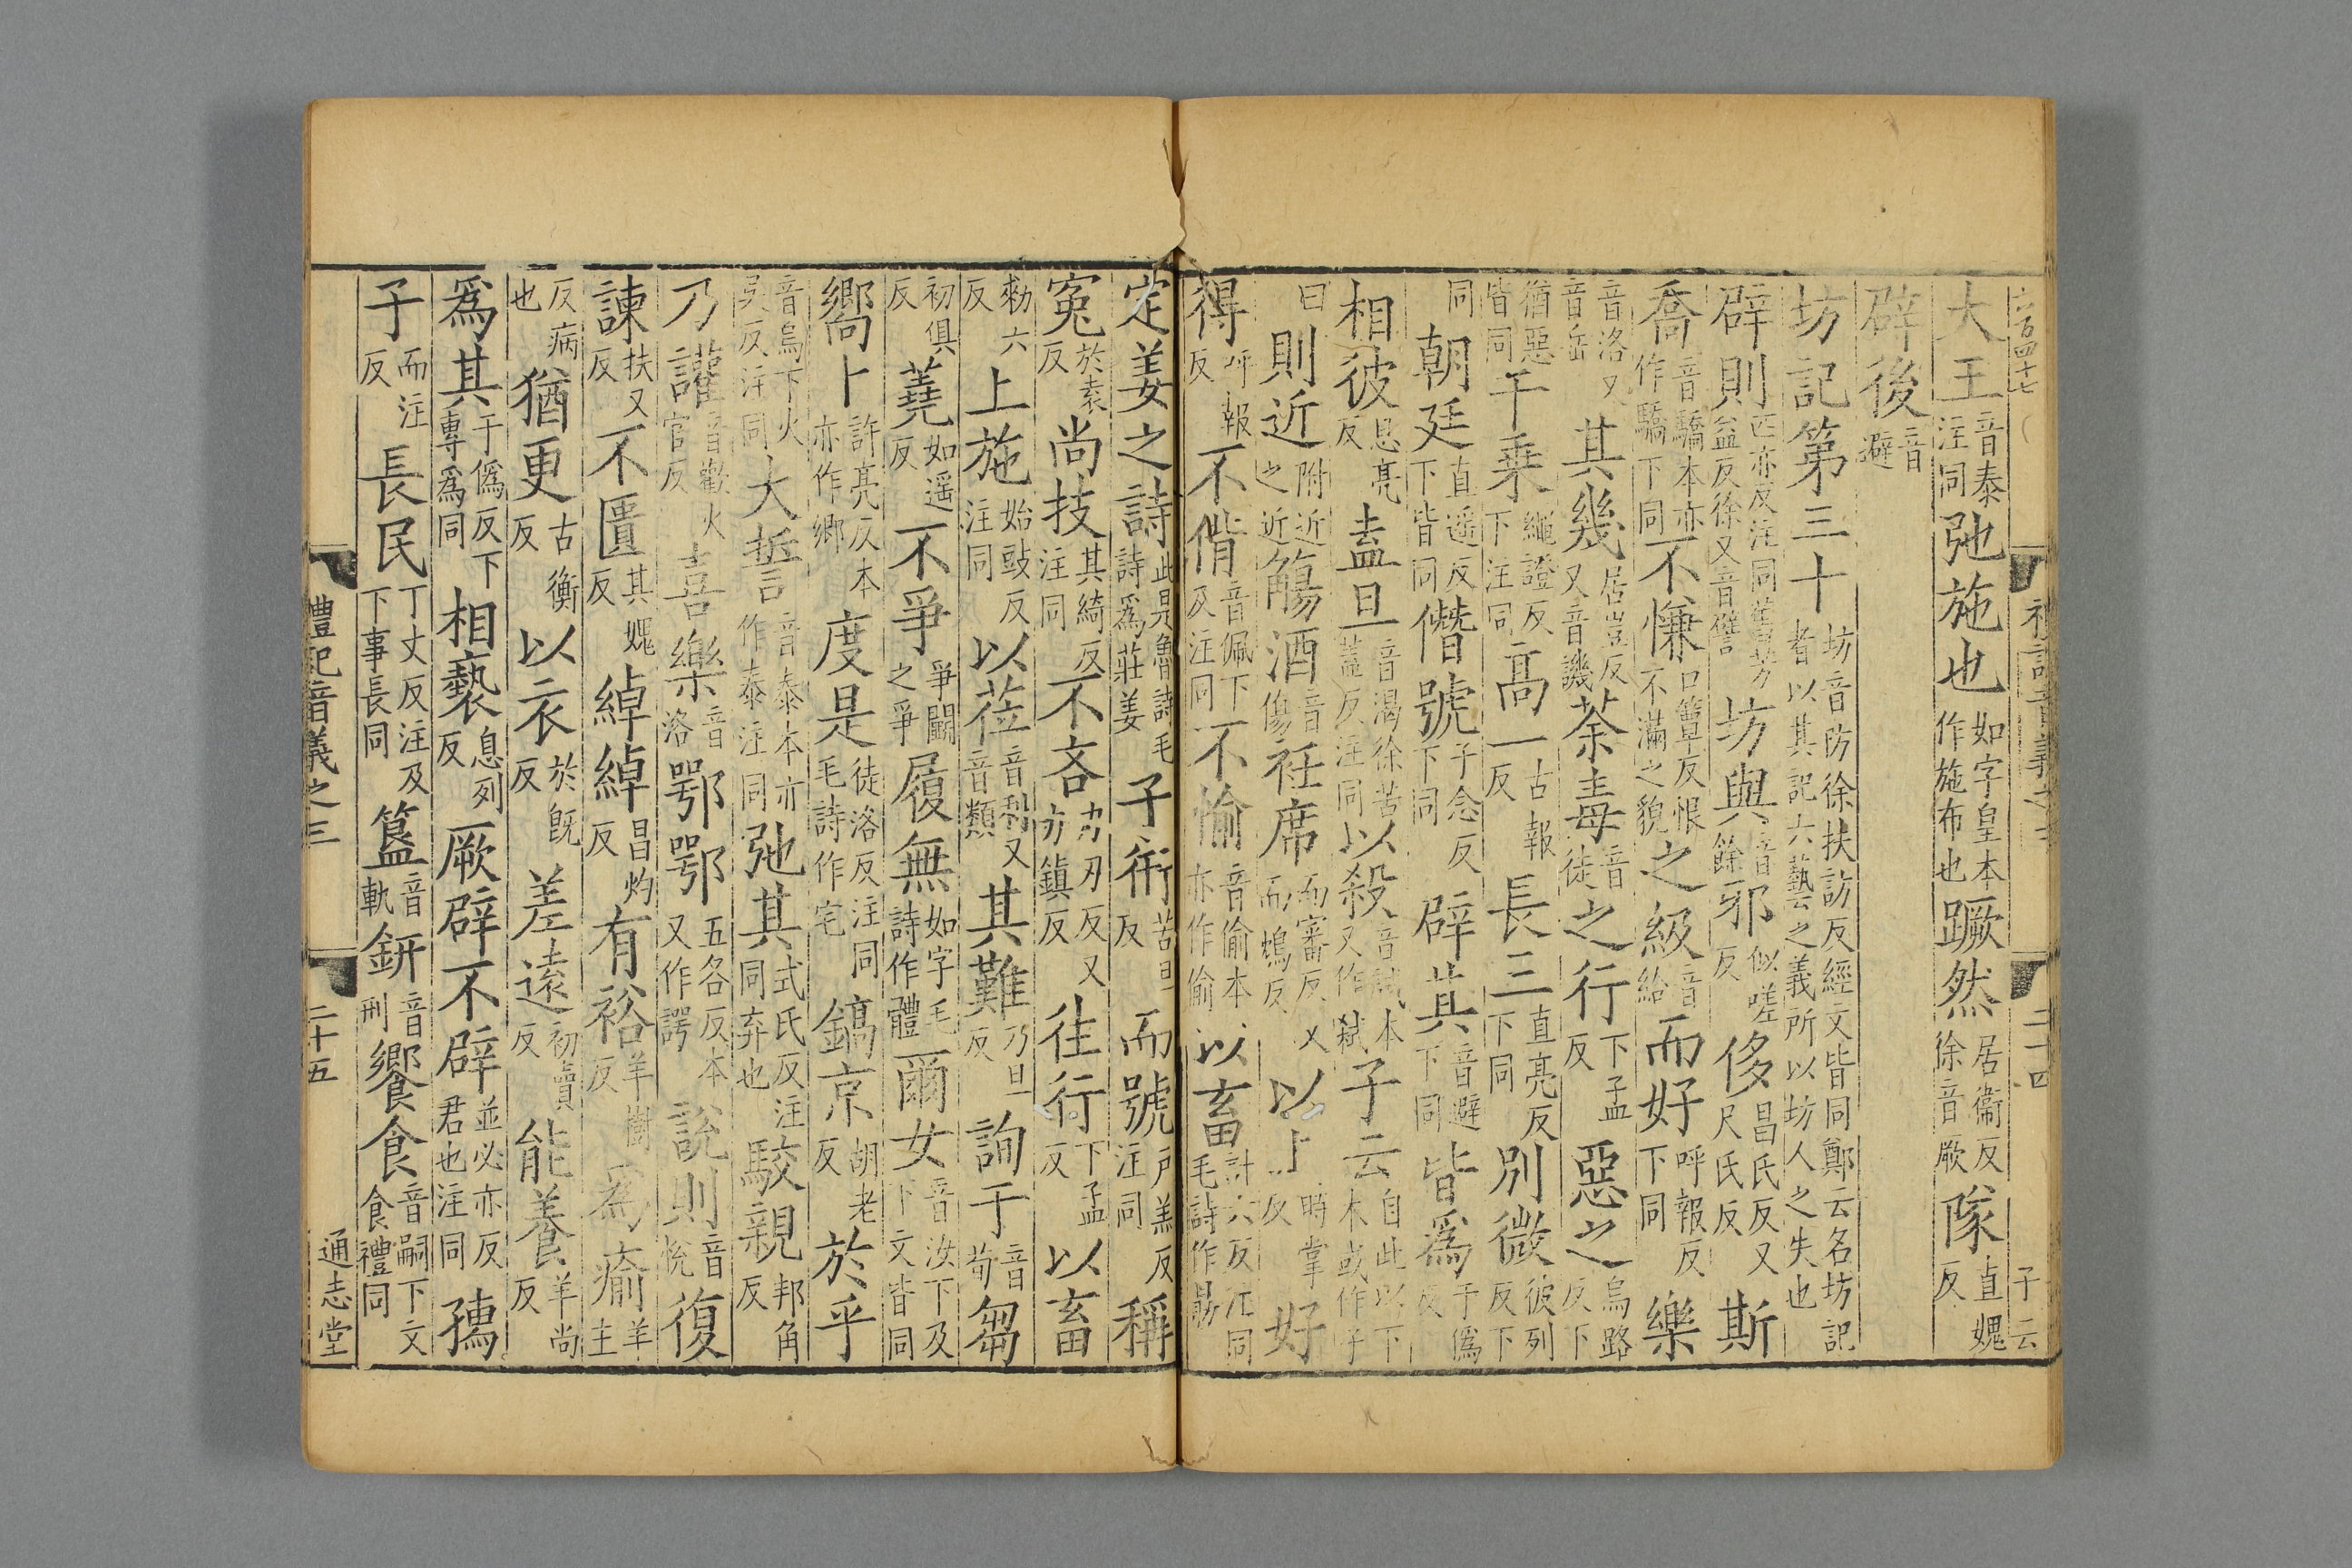 大王音泰注同弛施也如字皇本作施布也蹶然居衞反徐音厥隊直媿反
辟後音避
坊記第三十坊音防徐扶訪反經文皆同鄭云名坊記者以其記六藝之義所以坊人之失也
辟則匹亦反注同芳益反徐又音譬坊與音餘邪似嗟反侈昌氏反又尺氏反斯
喬音驕本亦作驕下同不慊口簟反恨不滿之貌之級音給而好呼報反下同樂
音洛又音岳其幾居豈反又音譏荼毒音徒之行下孟反惡之烏路反下
猶惡皆同千乘繩證反下注同高一古報反長三直亮反下同別微彼列反下
同朝廷直遥反下皆同僭號子念反下同辟其音避下同皆爲于僞反
相彼息亮反盍旦音渴徐苦蓋反注同以殺音試本又作弑子云自此以下本或作子
曰則近附近之近觴酒音傷衽席而審反又而鴆反以上時掌反好
得呼報反不偝音佩下及注同不愉音偷本亦作偷以畜許六反注同毛詩作勗
定姜之詩此是魯詩毛詩爲莊姜子衎苦旦反而號戶羔反注同稱
寃於袁反尚技其綺反注同不吝力刃反又力鎮反往行下孟反以畜
勑六反上施始豉反注同以莅音利又音類其難乃旦反詢于音荀芻
初俱反蕘如遥反不爭爭鬬之爭履無如字毛詩作體爾女音汝下及下文皆同
嚮卜許亮反本亦作鄉度是徒洛反注同毛詩作宅鎬京胡老反於乎
音烏下火吳反注同大誓音泰本亦作泰注同弛其式氏反注同弃也駮親邦角反
乃讙音歡火官反喜樂音洛鄂鄂五各反本又作諤說則音悅復
諫扶又反不匱其媿反綽綽昌灼反有裕羊樹反爲瘉羊主
反病也猶更古衡反以衣於旣反差遠初賣反能養羊尚反
爲其于僞反下專爲同相褻息列反厥辟不辟並必亦反君也注同孺
子而注反長民丁丈反注及下事長同簋音軌鉶音刑饗食音嗣下文食禮同
禮記音義之三 二十五 通志堂